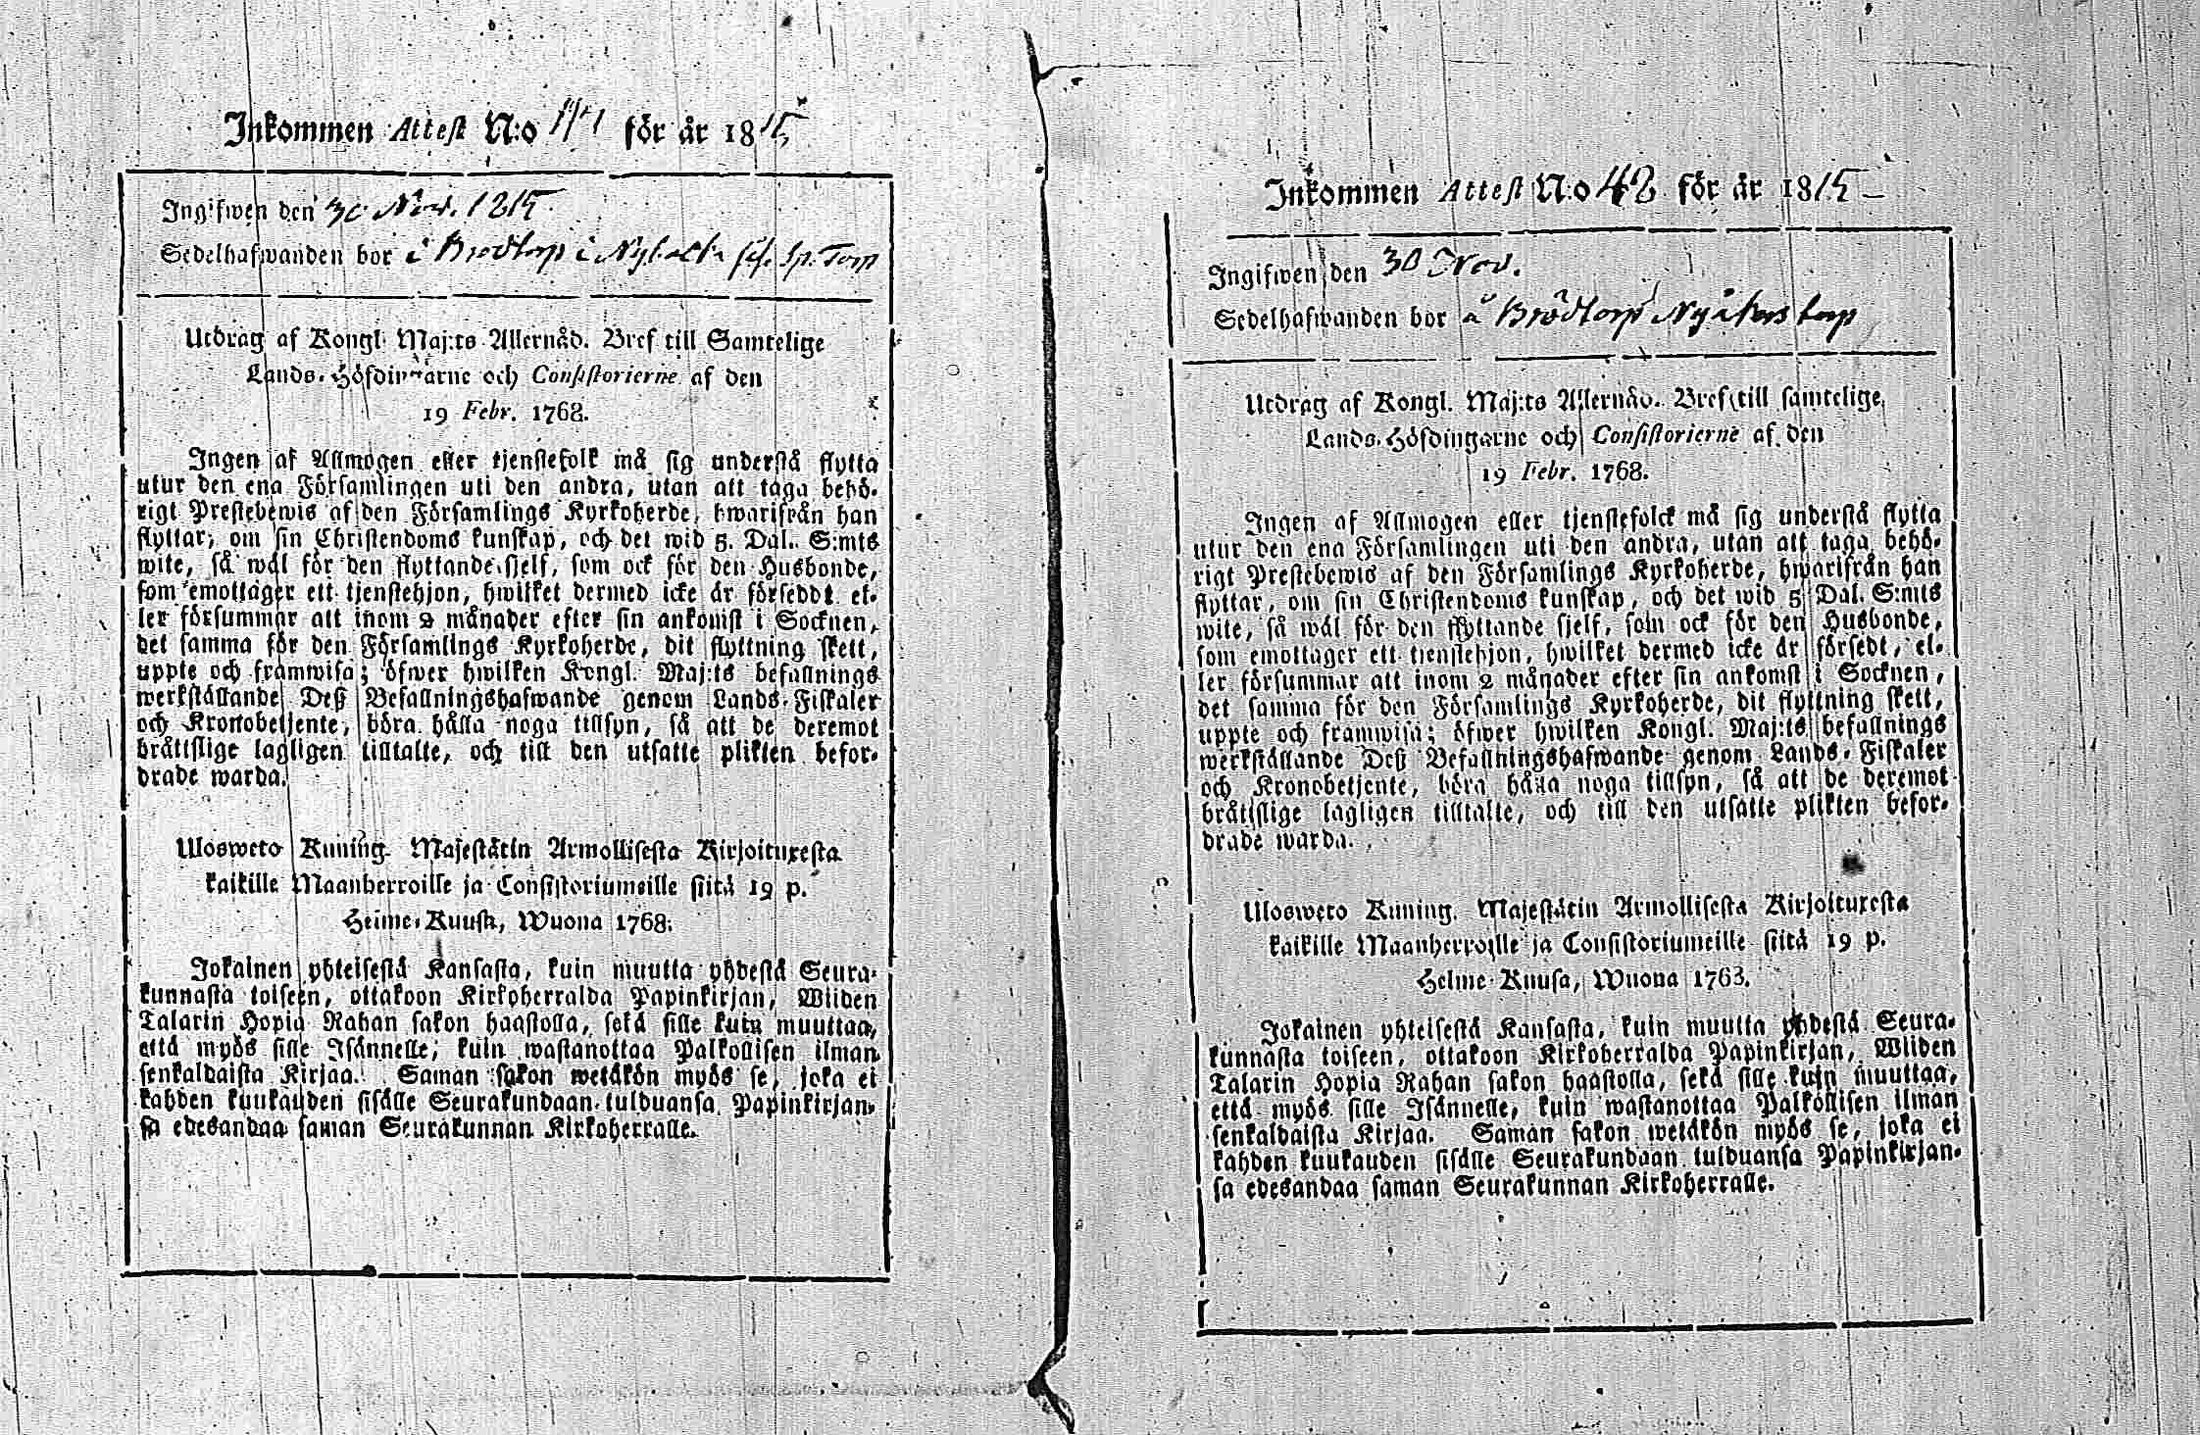 Inkommen Attest N:o för år 1815
Ingifwen den 30 Nov. 1815.
Sedelhafwanden bor i Brödtorp i Torp
Utdrag af Kongl. Maj:ts Allernåd. Bref till Samtelige
Lands-Höfdingarne och Consistorierne af den
19 Febr. 1768.
Ingen af Allmogen eller tjenstefolk må sig understå flytta
utur den ena Församlingen uti den andra, utan att taga behö-
rigt Prestebewis af den Församlings Kyrkoherde, hwarifrån han
flyttar, om sin Christendoms kunskap, och det wid 5. Dal. S:mts
wite, så wäl för den flyttande sjelf, som ock för den Husbonde,
som emottager ett tjenstehjon, hwilket dermed icke är förseddt el-
ler försummar att inom 2 månader efter sin ankomst i Socknen,
det samma för den Församlings Kyrkoherde, dit flyttning skett,
uppte och framwisa; öfwer hwilken Kongl. Maj:ts befallnings
werkställande Deß Befallningshafwande genom Lands-Fiskaler
och Kronobetjente, böra hålla noga tillsyn, så att de deremot
bråttslige lagligen tilltalte, och till den utsatte plikten befor-
drade warda.
Ulosweto Kuning. Majestätin Armollisesta Kirjoituxesta
kaikille Maanherroille ja Consistoriumeille siitä 19 p.
Helme-Kuusa, Wuona 1768.
Jokainen yhteisestä Kansasta, kuin muutta yhdestä Seura-
kunnasta toiseen, ottakoon Kirkoherralda Papinkirjan, Wiiden
Talarin Hopia Rahan sakon haastolla, sekä sille kuin muuttaa,
että myös sille Isännelle, kuin wastanottaa Palkollisen ilman
senkaldaista Kirjaa. Saman sakon wetäkön myös se, joka ei
kahden kuukauden sisälle Seurakundaan tulduansa Papinkirjan-
sa edesandaa saman Seurakunnan Kirkoherralle.
Inkommen Attest N:o 42 för år 1815
Ingifwen den 30 Nov.
Sedelhafwanden bor å Brödtorp Nyåkers torp
Utdrag af Kongl. Maj:ts Allernåd. Bref till samtelige
Lands-Höfdingarne och Consistorierne af den
19 Febr. 1768.
Ingen af Allmogen eller tjenstefolck må sig understå flytta
utur den ena Församlingen uti den andra, utan att taga behö-
rigt Prestebewis af den Församlings Kyrkoherde, hwarifrån han
flyttar, om sin Christendoms kunskap, och det wid 5 Dal. S:mts
wite, så wäl för den flyttande sjelf, som ock för den Husbonde,
som emottager ett tjenstehjon, hwilket dermed icke är försedt, el-
ler försummar att inom 2 månader efter sin ankomst i Socknen,
det samma för den Församlings Kyrkoherde, dit flyttning skett,
uppte och framwisa; öfwer hwilken Kongl. Maj:ts befallnings
werkställande Deß Befallningshafwande genom Lands-Fiskaler
och Kronobetjente, böra hålla noga tillsyn, så att de deremot
bråttslige lagligen tilltalte, och till den utsatte plikten befor-
drade warda.
Ulosweto Kuning. Majestätin Armollisesta Kirjoituxesta
kaikille Maanherroille ja Consistoriumeille siitä 19 p.
Helme-Kuusa, Wuona 1768.
Jokainen yhteisestä Kansasta, kuin muutta yhdestä Seura-
kunnasta toiseen, ottakoon Kirkoherralda Papinkirjan, Wiiden
Talarin Hopia Rahan sakon haastolla, sekä sille kuin muuttaa,
että myös sille Isännelle, kuin wastanottaa Palkollisen ilman
senkaldaista Kirjaa. Saman sakon wetäkön myös se, joka ei
kahden kuukauden sisälle Seurakundaan tulduansa Papinkirjan-
sa edesandaa saman Seurakunnan Kirkoherralle.